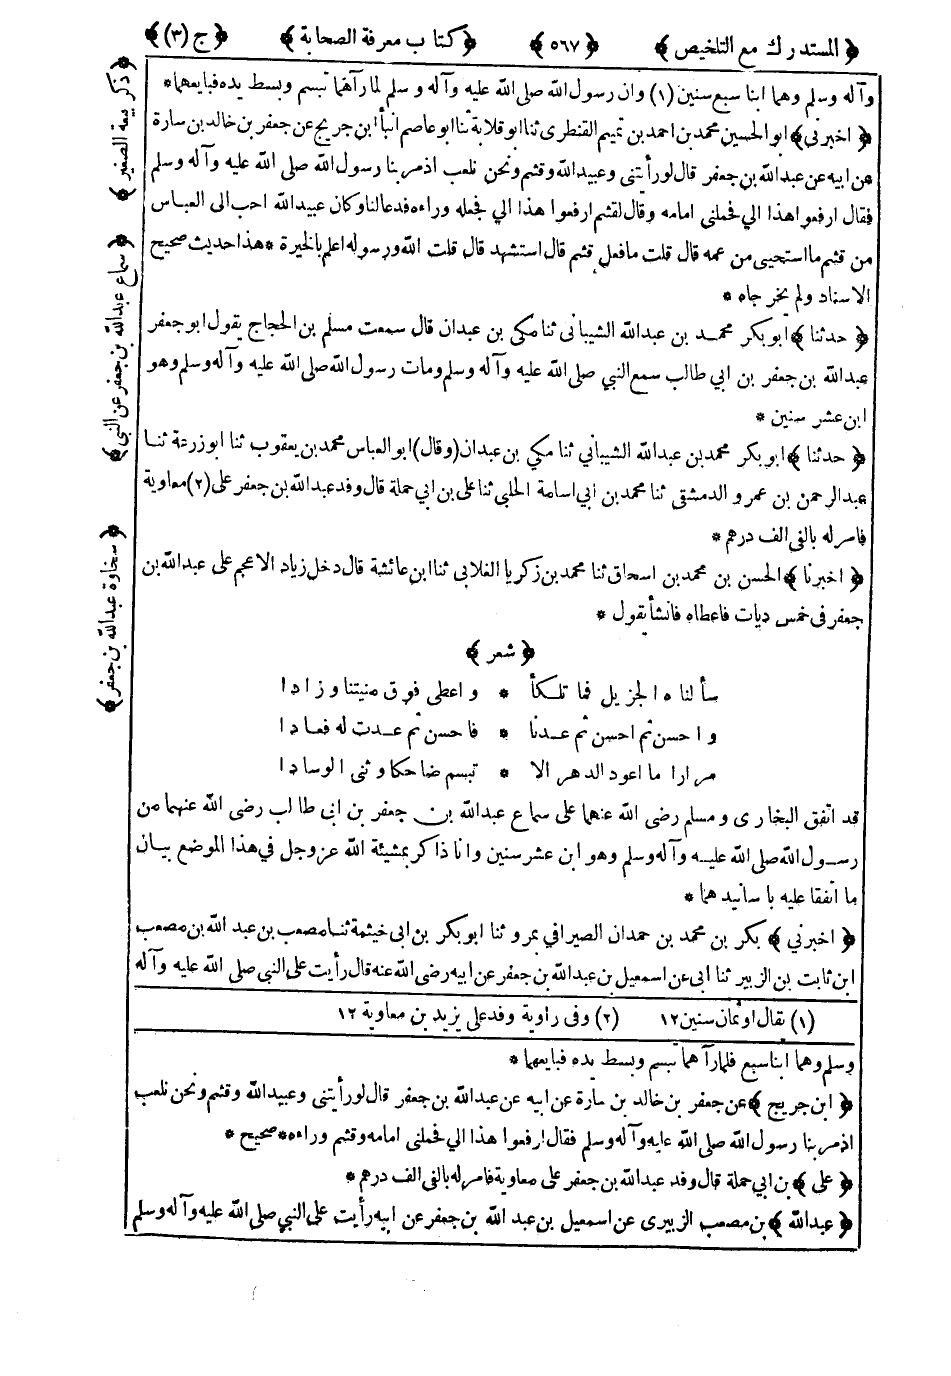 ﴿ المستدرك مع التلخيص ﴾ ﴿ ٥٦٧ ﴾ ﴿ كتاب معرفة الصحابة ﴾ ﴿ ج (٣) ﴾
وآله وسلم وهما ابنا سبع سنين (١) وان رسول الله صلى الله عليه وآله وسلم لما رآهما تبسم وبسط يده فبايعهما *
﴿ اخبرني ﴾ ابو الحسين محمد بن احمد بن تميم القنطرى ثنا ابو قلابة ثنا ابو عاصم انبأ ابن جريج عن جعفر بن خالد بن سارة
عن ابيه عن عبد الله بن جعفر قال لو رأيتنى وعبيد الله وقثم ونحن نلعب اذ مر بنا رسول الله صلى الله عليه وآله وسلم
فقال ارفعوا هذا الي فحملنى امامه وقال لقثم ارفعوا هذا الي فجعله وراءه فدعا لنا وكان عبيد الله احب الى العباس
من قثم ما استحيى من عمه قال قلت ما فعل قثم قال استشهد قال قلت الله ورسوله اعلم بالخيرة * هذا حديث صحيح
الاسناد ولم يخرجاه *
﴿ حدثنا ﴾ ابو بكر محمد بن عبد الله الشيبانى ثنا مكي بن عبدان قال سمعت مسلم بن الحجاج يقول ابو جعفر
عبد الله بن جعفر بن ابي طالب سمع النبي صلى الله عليه وآله وسلم ومات رسول الله صلى الله عليه وآله وسلم وهو
ابن عشر سنين *
﴿ حدثنا ﴾ ابو بكر محمد بن عبد الله الشيباني ثنا مكي بن عبدان (وقال) ابو العباس محمد بن يعقوب ثنا ابو زرعة ثنا
عبد الرحمن بن عمرو الدمشقى ثنا محمد بن ابي اسامة الحلبي ثنا على بن ابي حملة قال وفد عبد الله بن جعفر على (٢) معاوية
فامر له بالفى الف درهم *
﴿ اخبرنا ﴾ الحسن بن محمد بن اسحاق ثنا محمد بن زكريا الغلابى ثنا ابن عائشة قال دخل زياد الاعجم على عبد الله بن
جعفر فى خمس ديات فاعطاه فانشأ يقول *
﴿ شعر ﴾
سألناه الجزيل فما تلكأ * واعطى فوق منيتنا وزادا
واحسن ثم احسن ثم عدنا * فاحسن ثم عدت له فعادا
مرارا ما اعود الدهر الا * تبسم ضاحكا وثنى الوسادا
قد اتفق البخارى ومسلم رضى الله عنهما على سماع عبد الله بن جعفر بن ابى طالب رضى الله عنهما من
رسول الله صلى الله عليه وآله وسلم وهو ابن عشر سنين وانا ذاكر بمشيئة الله عز وجل في هذا الموضع بيان
ما اتفقا عليه باسانيدهما *
﴿ اخبرني ﴾ بكر بن محمد بن حمدان الصيرافي بمرو ثنا ابو بكر بن ابى خيثمة ثنا مصعب بن عبد الله بن مصعب
ابن ثابت بن الزبير ثنا ابى عن اسمعيل بن عبد الله بن جعفر عن ابيه رضى الله عنه قال رأيت على النبى صلى الله عليه وآله
(١) يقال او ثمان سنين ١٢ (٢) وفى راوية وفد على يزيد بن معاوية ١٢
وسلم وهما ابنا سبع فلما رآهما تبسم وبسط يده فبايعهما *
﴿ ابن جريج ﴾ عن جعفر بن خالد بن سارة عن ابيه عن عبد الله بن جعفر قال لو رأيتنى وعبيد الله وقثم ونحن نلعب
اذ مر بنا رسول الله صلى الله عليه وآله وسلم فقال ارفعوا هذا الي فحملنى امامه وقثم وراءه * صحيح *
﴿ على ﴾ بن ابي حملة قال وفد عبد الله بن جعفر على معاوية فامر له بالفى الف درهم *
﴿ عبد الله ﴾ بن مصعب الزبيرى عن اسمعيل بن عبد الله بن جعفر عن ابيه رأيت على النبي صلى الله عليه وآله وسلم
﴿ ذكر بيعة الصغير ﴾
﴿ سماع عبد الله بن جعفر عن النبى ﴾
﴿ سخاوة عبد الله بن جعفر ﴾